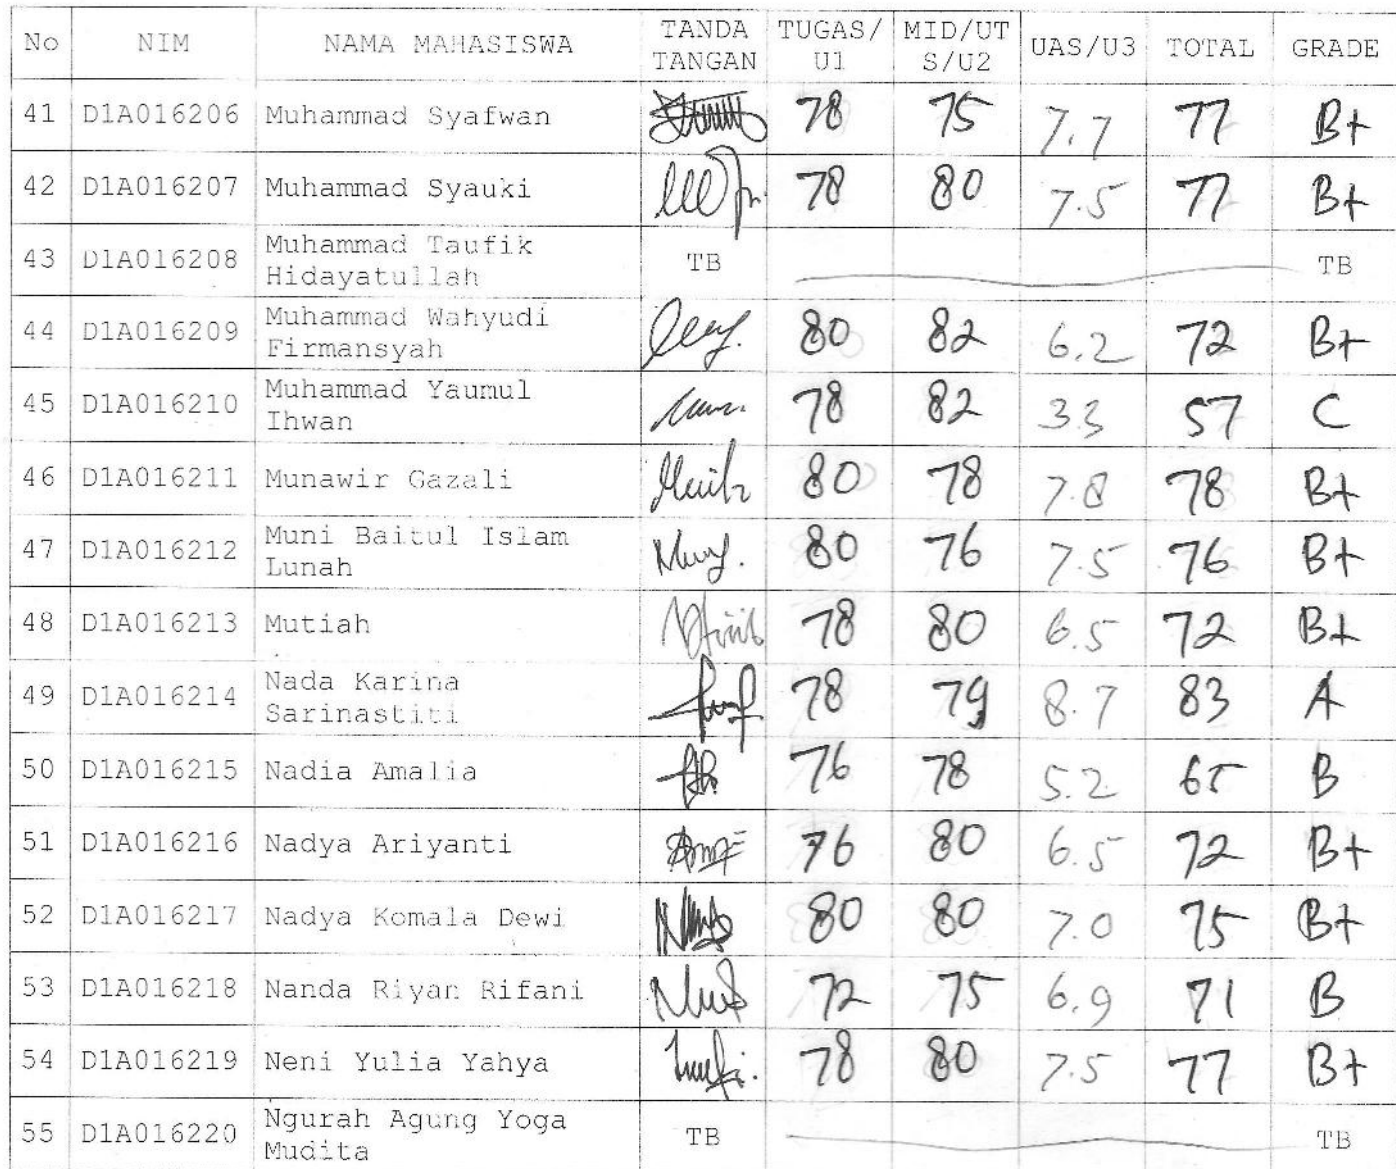 No NIM NAMA MAHASISWA TANDA TANGAN TUGAS/U1 MID/UTS/U2 UAS/U3 TOTAL GRADE
41 D1A016206 Muhammad Syafwan 78 75 7.7 77 B+
42 D1A016207 Muhammad Syauki 78 80 7.5 77 B+
43 D1A016208 Muhammad Taufik Hidayatullah TB TB
44 D1A016209 Muhammad Wahyudi Firmansyah 80 82 6.2 72 B+
45 D1A016210 Muhammad Yaumul Ihwan 78 82 33 57 C
46 D1A016211 Munawir Gazali 80 78 7.8 78 B+
47 D1A016212 Muni Baitul Islam Lunah 80 76 7.5 76 B+
48 D1A016213 Mutiah 78 80 6.5 72 B+
49 D1A016214 Nada Karina Sarinastiti 78 79 8.7 83 A
50 D1A016215 Nadia Amalia 76 78 5.2 65 B
51 D1A016216 Nadya Ariyanti 76 80 6.5 72 B+
52 D1A016217 Nadya Komala Dewi 80 80 7.0 75 B+
53 D1A016218 Nanda Riyan Rifani 72 75 6.9 71 B
54 D1A016219 Neni Yulia Yahya 78 80 7.5 77 B+
55 D1A016220 Ngurah Agung Yoga Mudita TB TB